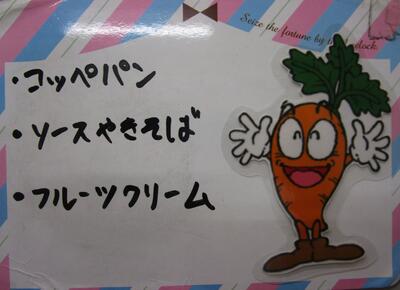 Seize the fortune by the forelock
・コッペパン
・ソースやきそば
・フルーツクリーム